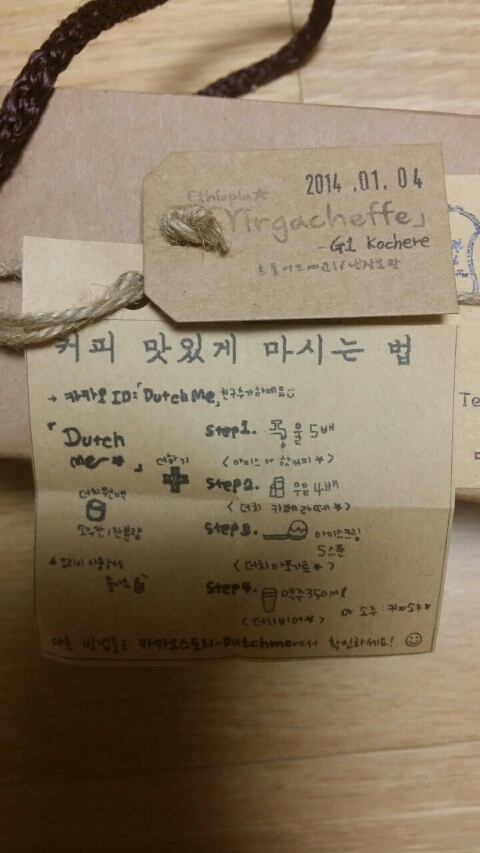 2014.01.04
Ethiopia☆
「Yirgacheffe」
-G1 Kochere
흔들어드세요!! 냉장보관
커피 맛있게 마시는 법
→ 카카오 ID:「Dutch Me」친구추가하세요
「Dutch me~★」
더하기
더치원액
소주잔1잔분량
Step1. 물 5배
<아이스 or 핫커피★>
Step2. 우유 4배
<더치 카페라떼★>
Step3. 아이스크림
5스푼
<더치아포가토★>
Step4. 맥주 350ml
<더치비어★>
or 소주:커피소주
다른 방법들은 카카오스토리-Dutchme에서 확인하세요!
Te